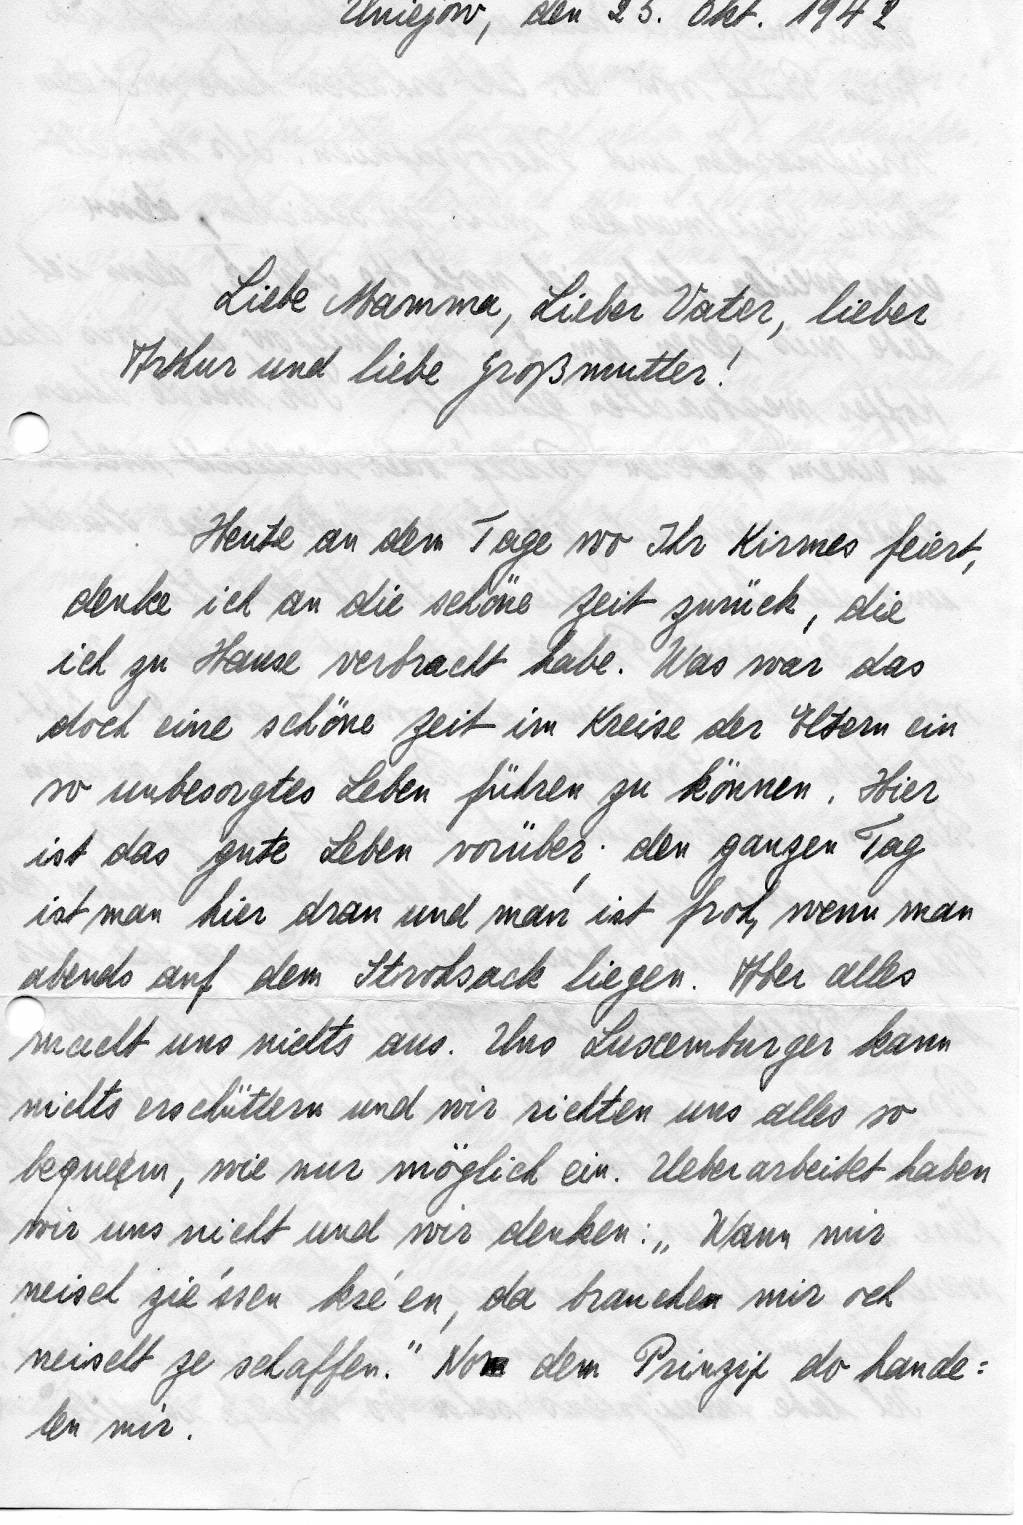 Uniejow, den 25. Okt. 1942
Liebe Mamma, Lieber Vater, lieber
Arthur und liebe Großmutter!
Heute an dem Tage wo Ihr Kirmes feiert,
denke ich an die schöne Zeit zurück, die
ich zu Hause verbracht habe. Was war das
doch eine schöne Zeit im Kreise der Eltern ein
so unbesorgtes Leben führen zu können. Hier
ist das gute Leben vorüber; den ganzen Tag
ist man hier dran und man ist froh, wenn man
abends auf dem Strohsack liegen. Aber alles
macht uns nichts aus. Uns Luxemburger kann
nichts erschüttern und wir richten uns alles so
bequem, wie nur möglich ein. Ueberarbeitet haben
wir uns nicht und wir denken: „Wann mir
neischt zie'ssen kre'en, da brauchen mir och
neischt ze schaffen." No dem Prinzip do hande=
len mir.